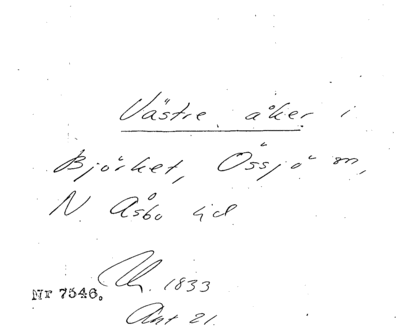 Västre åker i
Björket, Össjö sn,
N Åsbo hd
1833
Nr 7546.
Ant 21.